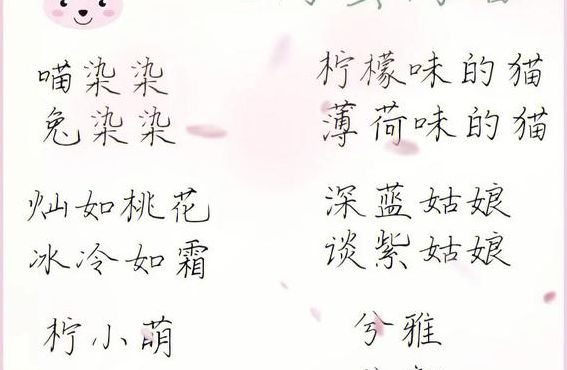 喵染染
兔染染
柠檬味的猫
薄荷味的猫
灿如桃花
冰冷如霜
深蓝姑娘
谈紫姑娘
柠小萌
兮雅